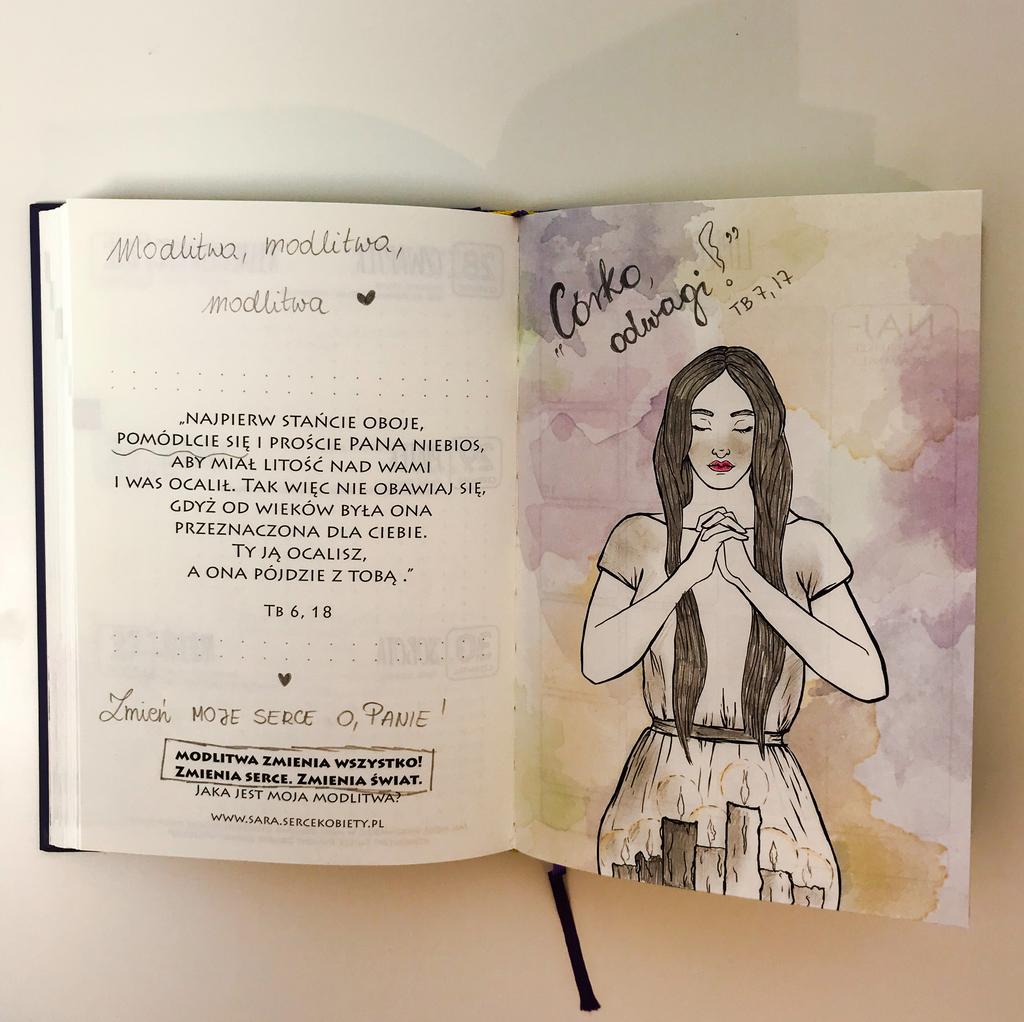 Modlitwa, modlitwa,
modlitwa
„NAJPIERW STAŃCIE OBOJE,
POMÓDLCIE SIĘ I PROŚCIE PANA NIEBIOS,
ABY MIAŁ LITOŚĆ NAD WAMI
I WAS OCALIŁ. TAK WIĘC NIE OBAWIAJ SIĘ,
GDYŻ OD WIEKÓW BYŁA ONA
PRZEZNACZONA DLA CIEBIE.
TY JĄ OCALISZ,
A ONA PÓJDZIE Z TOBĄ .”
TB 6, 18
Zmień MOJE SERCE O, PANIE !
MODLITWA ZMIENIA WSZYSTKO!
ZMIENIA SERCE. ZMIENIA ŚWIAT.
JAKA JEST MOJA MODLITWA?
WWW.SARA.SERCEKOBIETY.PL
„Córko,
odwagi!”
TB 7, 17